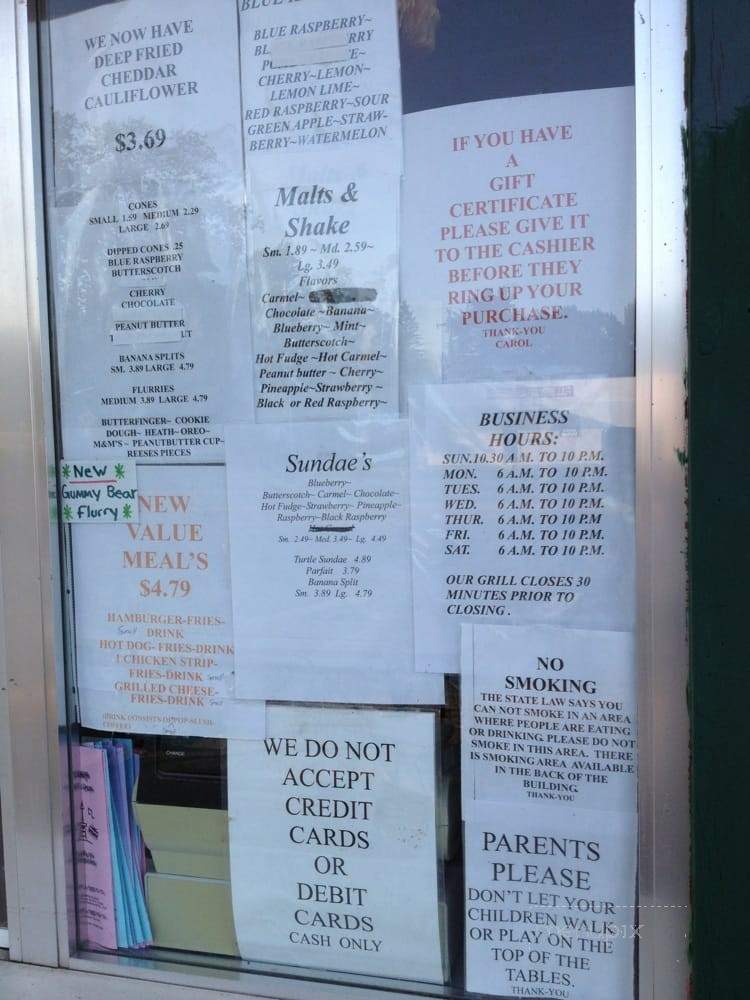 WE NOW HAVE
DEEP FRIED
CHEDDAR
CAULIFLOWER
$3.69
CONES
SMALL 1.59 MEDIUM 2.29
LARGE 2.69
DIPPED CONES .25
BLUE RASPBERRY
BUTTERSCOTCH
CHERRY
CHOCOLATE
PEANUT BUTTER
BANANA SPLITS
SM. 3.89 LARGE 4.79
FLURRIES
MEDIUM 3.89 LARGE 4.79
BUTTERFINGER~ COOKIE
DOUGH~ HEATH~OREO~
M&M'S ~ PEANUTBUTTER CUP~
REESES PIECES
*New*
Gummy Bear
*Flurry*
NEW
VALUE
MEAL'S
$4.79
HAMBURGER-FRIES-
Small DRINK
HOT DOG- FRIES-DRINK
1 CHICKEN STRIP-
FRIES-DRINK Small
GRILLED CHEESE-
FRIES-DRINK Small
BLUE RASPBERRY~
CHERRY~LEMON~
LEMON LIME~
RED RASPBERRY~SOUR
GREEN APPLE~STRAW-
BERRY~WATERMELON
Malts &
Shake
Sm. 1.89 ~ Md. 2.59~
Lg. 3.49
Flavors
Carmel~
Chocolate ~Banana~
Blueberry~ Mint~
Butterscotch~
Hot Fudge ~Hot Carmel~
Peanut butter ~ Cherry~
Pineapple~Strawberry ~
Black or Red Raspberry~
Sundae's
Blueberry~
Butterscotch~ Carmel~ Chocolate~
Hot Fudge~Strawberry~ Pineapple~
Raspberry~Black Raspberry
Sm. 2.49~ Med. 3.49~ Lg. 4.49
Turtle Sundae 4.89
Parfait 3.79
Banana Split
Sm. 3.89 Lg. 4.79
IF YOU HAVE
A
GIFT
CERTIFICATE
PLEASE GIVE IT
TO THE CASHIER
BEFORE THEY
RING UP YOUR
PURCHASE.
THANK-YOU
CAROL
BUSINESS
HOURS:
SUN.10.30 A M. TO 10 P.M.
MON. 6 A.M. TO 10 P.M.
TUES. 6 A.M. TO 10 P.M.
WED. 6 A.M. TO 10 P.M.
THUR. 6 A.M. TO 10 P.M
FRI. 6 A.M. TO 10 P.M.
SAT. 6 A.M. TO 10 P.M.
OUR GRILL CLOSES 30
MINUTES PRIOR TO
CLOSING .
NO
SMOKING
THE STATE LAW SAYS YOU
CAN NOT SMOKE IN AN AREA
WHERE PEOPLE ARE EATING
OR DRINKING. PLEASE DO NOT
SMOKE IN THIS AREA. THERE
IS SMOKING AREA AVAILABLE
IN THE BACK OF THE
BUILDING.
THANK-YOU
WE DO NOT
ACCEPT
CREDIT
CARDS
OR
DEBIT
CARDS
CASH ONLY
PARENTS
PLEASE
DON'T LET YOUR
CHILDREN WALK
OR PLAY ON THE
TOP OF THE
TABLES.
THANK-YOU
CHANGE